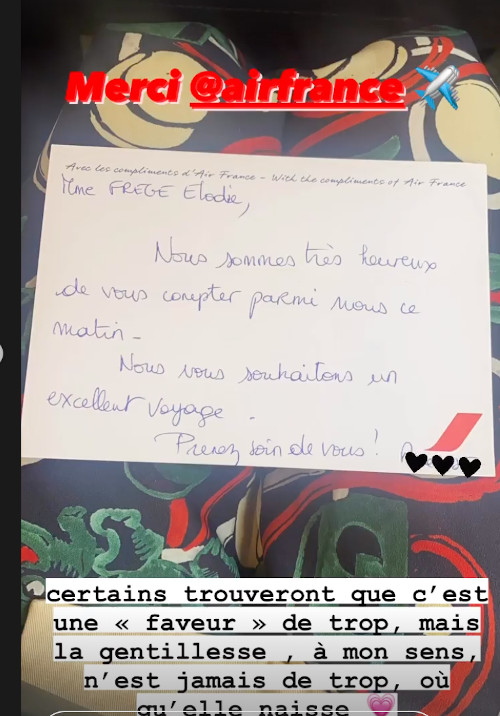 Merci @airfrance ✈️
Avec les compliments d'Air France - With the compliments of Air France
Mme FREGE Elodie,
Nous sommes très heureux
de vous compter parmi nous ce
matin.
Nous vous souhaitons un
excellent voyage.
Prenez soin de vous !
certains trouveront que c’est
une « faveur » de trop, mais
la gentillesse , à mon sens,
n’est jamais de trop, où
qu’elle naisse 💗